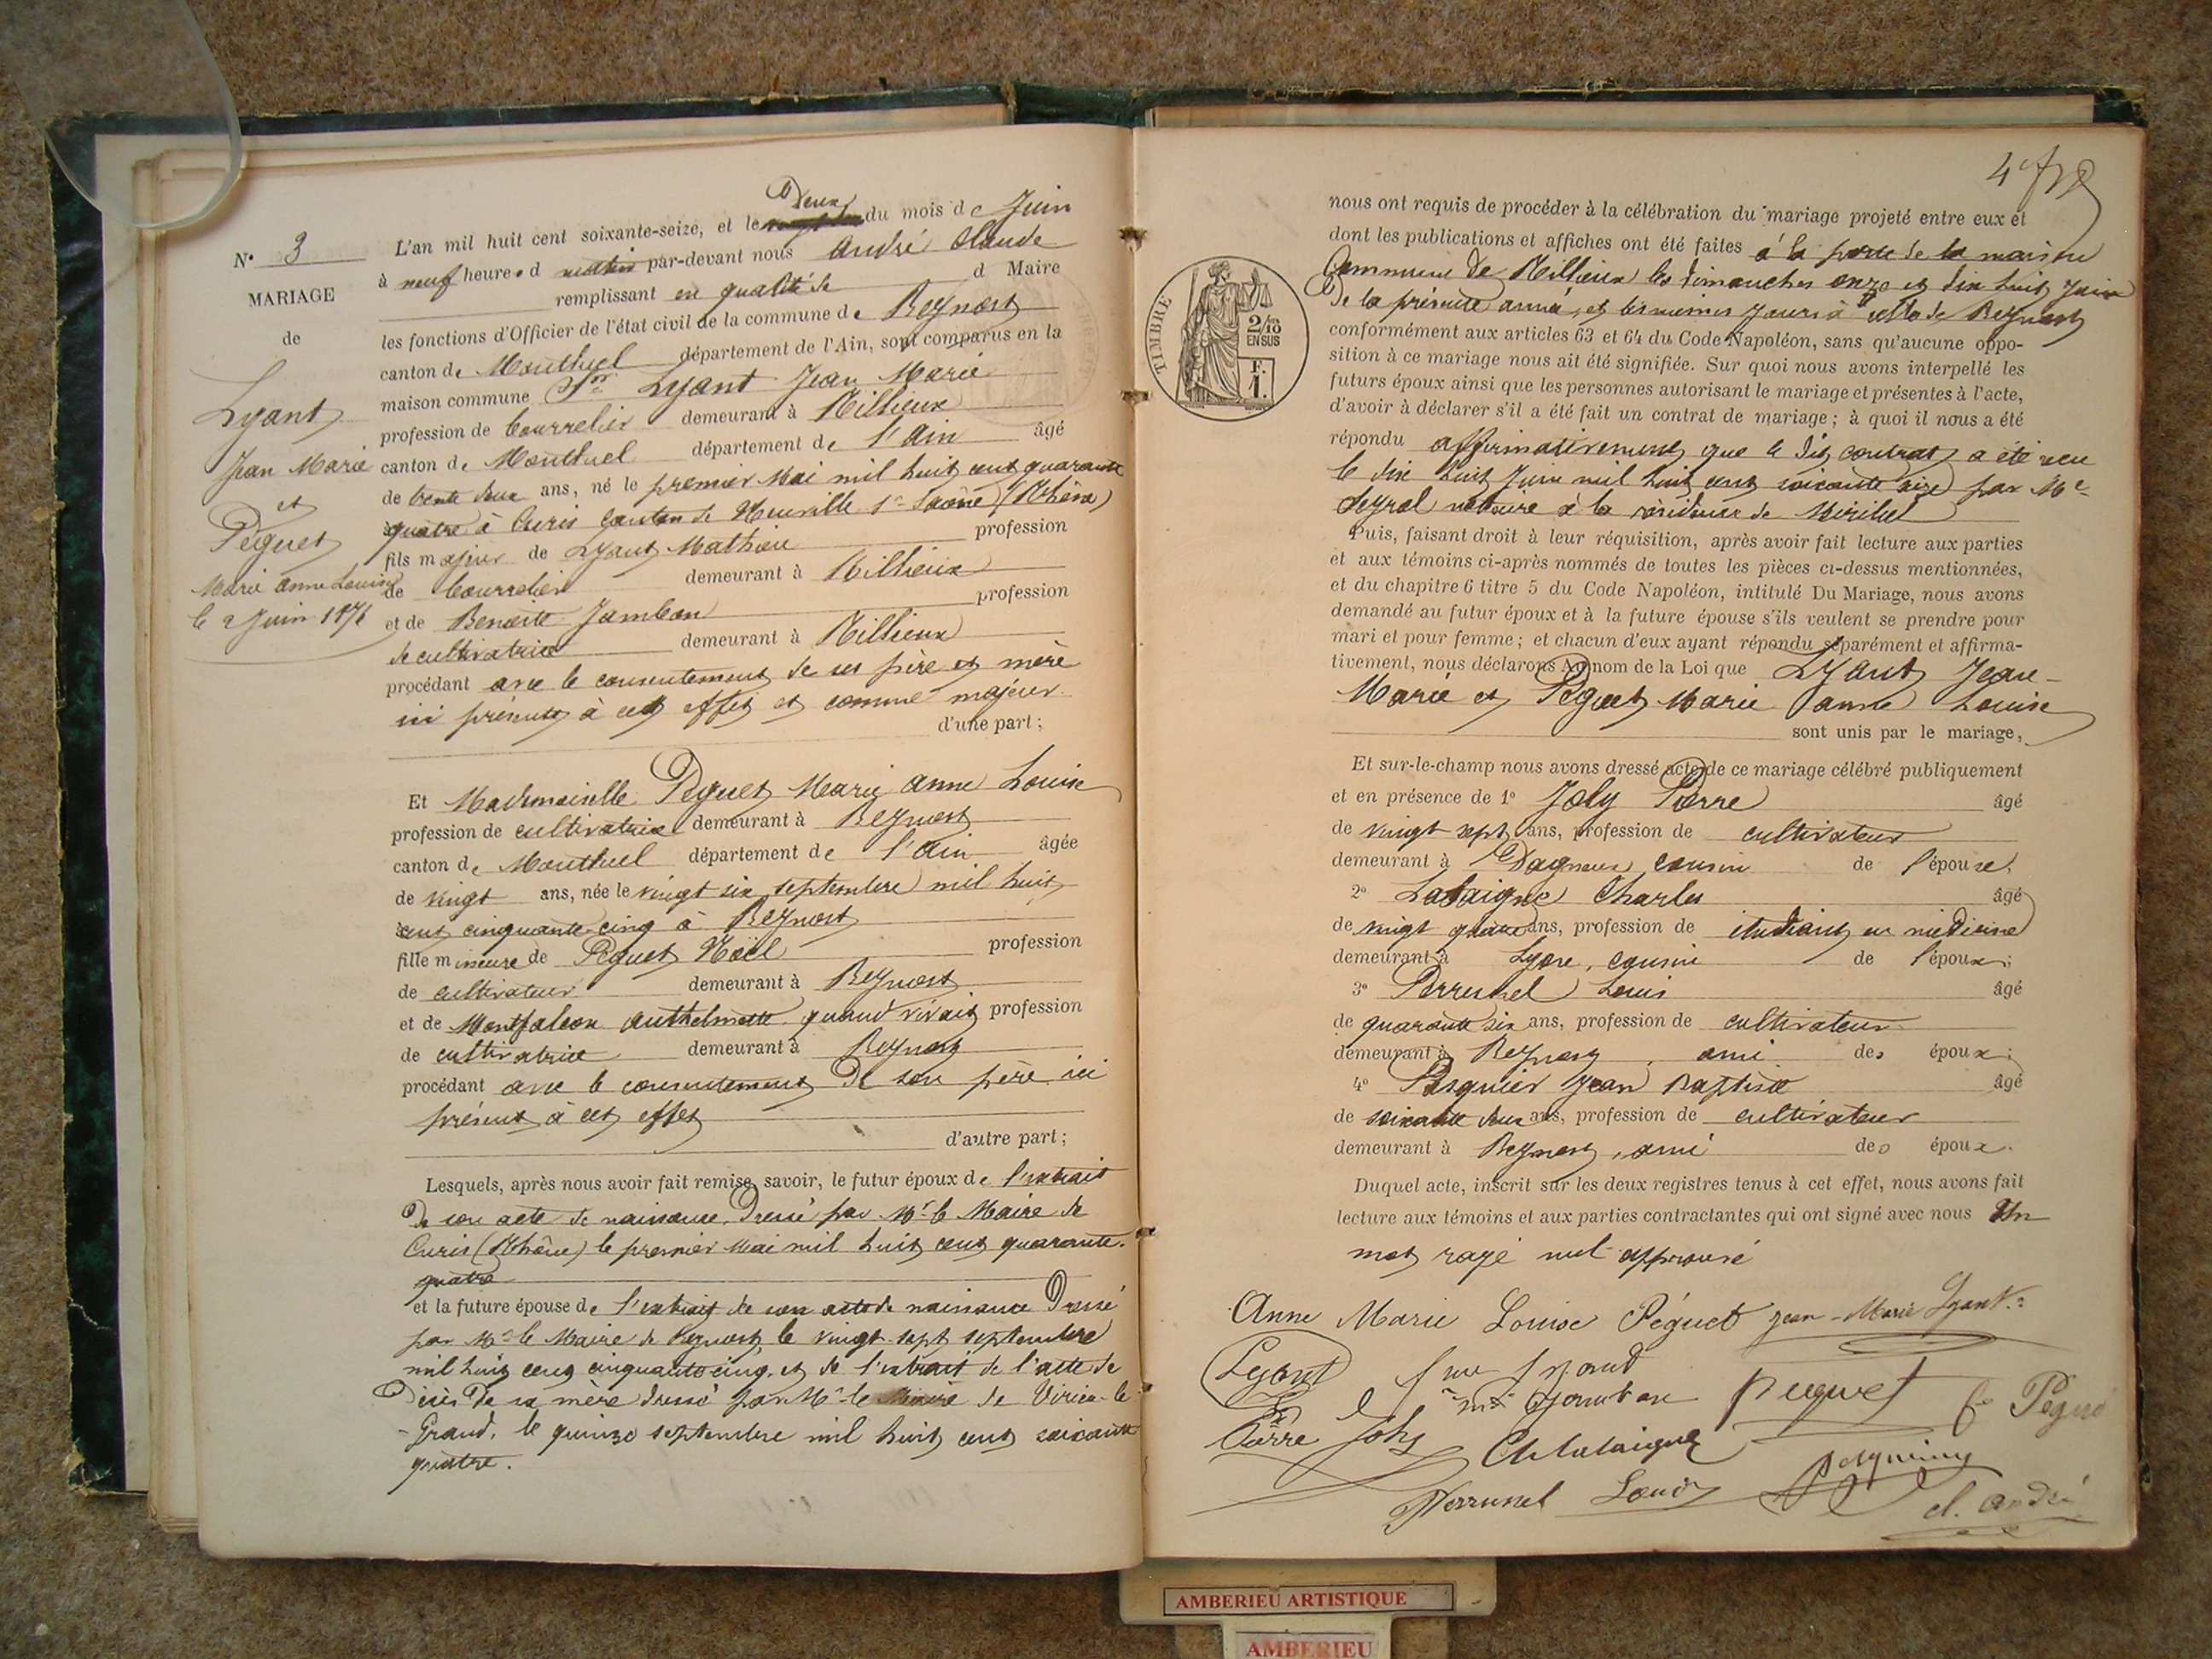 N° 3
MARIAGE
de
Lyant
Jean Marie
et
Péguet
Marie Anne Louise
le 2 Juin 1876
Deux
L'an mil huit cent soixante-seize, et le du mois de Juin
à neuf heures d matin par-devant nous André Claude
remplissant en qualité de d Maire
les fonctions d'Officier de l'état civil de la commune de Beynost
canton de Montluel département de l'Ain, sont comparus en la
maison commune Sr Lyant Jean Marie
profession de bourrelier demeurant à Rillieux
canton de Montluel département de l'Ain âgé
de trente deux ans, né le premier Mai mil huit cent quarante
quatre à Curis Canton de Neuville s- Saône (Rhône)
fils majeur de Lyant Mathieu profession
de bourrelier demeurant à Rillieux
et de Benoite Jambon profession
de cultivatrice demeurant à Rillieux
procédant avec le consentement de ses père et mère
ici présents à cet effet et comme majeur
d'une part ;
Et Mademoiselle Péguet Marie Anne Louise
profession de cultivatrice demeurant à Beynost
canton de Montluel département de l'Ain âgée
de vingt ans, née le vingt six septembre mil huit
cent cinquante-cinq à Beynost
fille mineure de Péguet Noël profession
de cultivateur demeurant à Beynost
et de Montfalcon Anthelmette quand vivait profession
de cultivatrice demeurant à Beynost
procédant avec le consentement de son père ici
présent à cet effet
d'autre part ;
Lesquels, après nous avoir fait remise, savoir, le futur époux de l'extrait
de son acte de naissance dressé par Mr le Maire de
Curis (Rhône) le premier Mai mil huit cent quarante-
quatre
et la future épouse de l'extrait de son acte de naissance dressé
par Mr le Maire de Beynost, le vingt sept septembre
mil huit cent cinquante-cinq, et de l'extrait de l'acte de
Décès de sa mère dressé par Mr le Maire de Virieu-le-
Grand, le quinze septembre mil huit cent soixante
quatre.
4
nous ont requis de procéder à la célébration du mariage projeté entre eux et
dont les publications et affiches ont été faites à la porte de la maison
Commune de Rillieux les dimanches onze et dix huit Juin
de la présente année, et les mêmes jours à celle de Beynost
conformément aux articles 63 et 64 du Code Napoléon, sans qu'aucune oppo-
sition à ce mariage nous ait été signifiée. Sur quoi nous avons interpellé les
futurs époux ainsi que les personnes autorisant le mariage et présentes à l'acte,
d'avoir à déclarer s'il a été fait un contrat de mariage ; à quoi il nous a été
répondu affirmativement que le dit contrat a été reçu
le dix huit Juin mil huit cent soixante seize par Me
notaire à la résidence de Miribel
Puis, faisant droit à leur réquisition, après avoir fait lecture aux parties
et aux témoins ci-après nommés de toutes les pièces ci-dessus mentionnées,
et du chapitre 6 titre 5 du Code Napoléon, intitulé Du Mariage, nous avons
demandé au futur époux et à la future épouse s'ils veulent se prendre pour
mari et pour femme ; et chacun d'eux ayant répondu séparément et affirma-
tivement, nous déclarons Au nom de la Loi que Lyant Jean-
Marie et Péguet Marie Anne Louise
sont unis par le mariage,
Et sur-le-champ nous avons dressé acte de ce mariage célébré publiquement
et en présence de 1° Joly Pierre âgé
de vingt sept ans, profession de cultivateur
demeurant à Dagneux cousin de l'épouse.
2° Lalaigne Charles âgé
de vingt quatre ans, profession de étudiant en médecine
demeurant à Lyon, cousin de l'époux ;
3° Perrussel Louis âgé
de quarante six ans, profession de cultivateur
demeurant à Beynost, ami des époux ;
4° Pasquier Jean Baptiste âgé
de soixante deux ans, profession de cultivateur
demeurant à Beynost, ami des époux.
Duquel acte, inscrit sur les deux registres tenus à cet effet, nous avons fait
lecture aux témoins et aux parties contractantes qui ont signé avec nous Un
mot rayé nul approuvé
Anne Marie Louise Péguet Jean-Marie Lyant
Lyant
Jambon Peguet
Pierre Joly
Perrussel Louis
cl. André
TIMBRE
2/10
EN SUS
F.
1.
AMBERIEU ARTISTIQUE
AMBERIEU